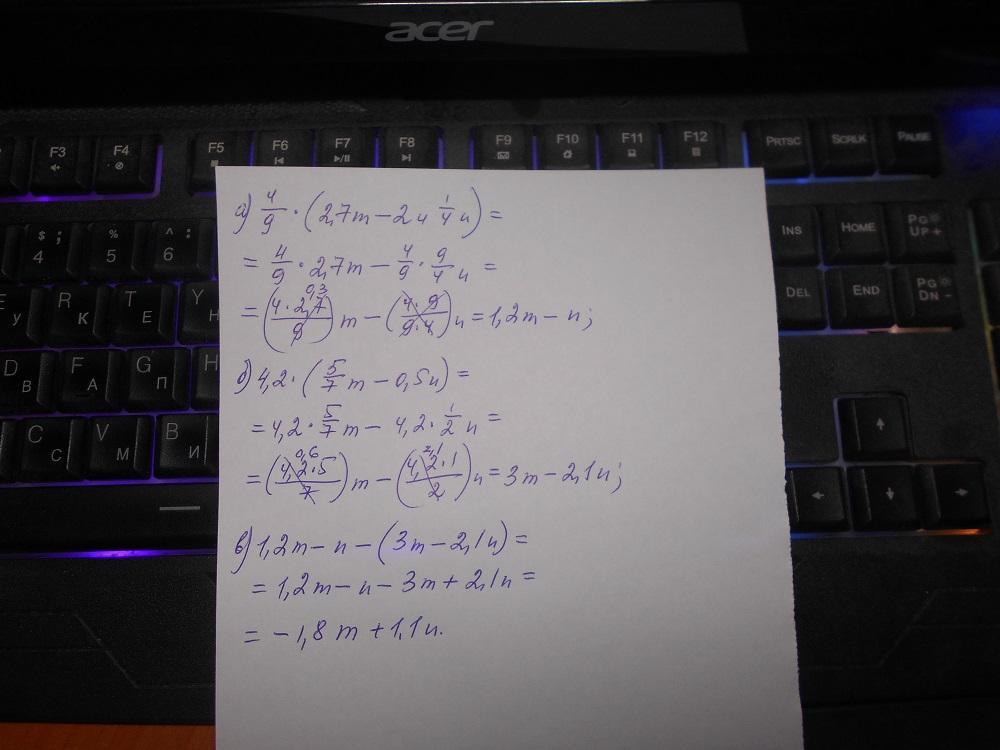 acer
F3 F4 F5 F6 F7 F8 F9 F10 F11 F12 PRTSC SCRLK PAUSE
$ ; 4 % 5 ^ : 6 INS HOME PG UP +
E У R К T Е Y Н DEL END PG DN -
D В F А G П H
C С V М B И
а) 4/9 · (2,7m − 2 и 1/4 n) =
= 4/9 · 2,7m − 4/9 · 9/4 n =
= (4 · 2,7 0,3 / 9) m − (4 · 9 / 9 · 4) n = 1,2m − n;
б) 4,2 · (5/7 m − 0,5n) =
= 4,2 · 5/7 m − 4,2 · 1/2 n =
= (4,2 · 5 0,6 / 7) m − (4,2 · 1 2,1 / 2) n = 3m − 2,1n;
в) 1,2m − n − (3m − 2,1n) =
= 1,2m − n − 3m + 2,1n =
= −1,8m + 1,1n.